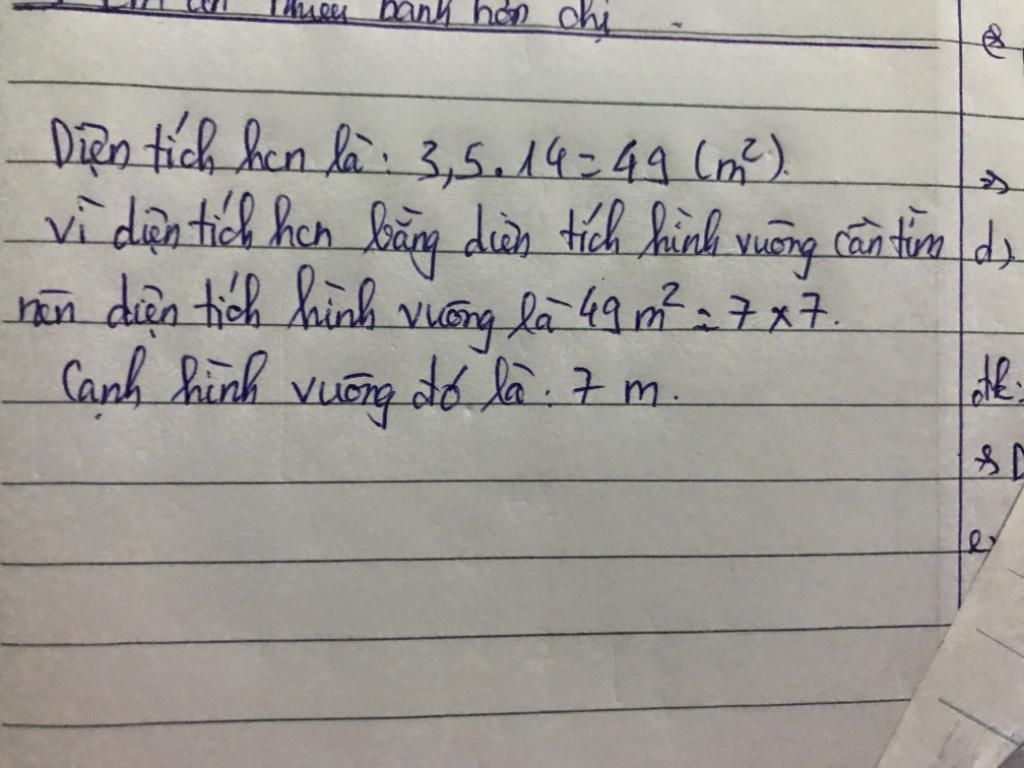 nhiều bánh hơn chị.
Diện tích hcn là: 3,5.14=49 (m²).
vì diện tích hcn bằng diện tích hình vuông cần tìm
nên diện tích hình vuông là 49m² = 7 x 7.
Cạnh hình vuông đó là: 7 m.
d)
đk:
e)